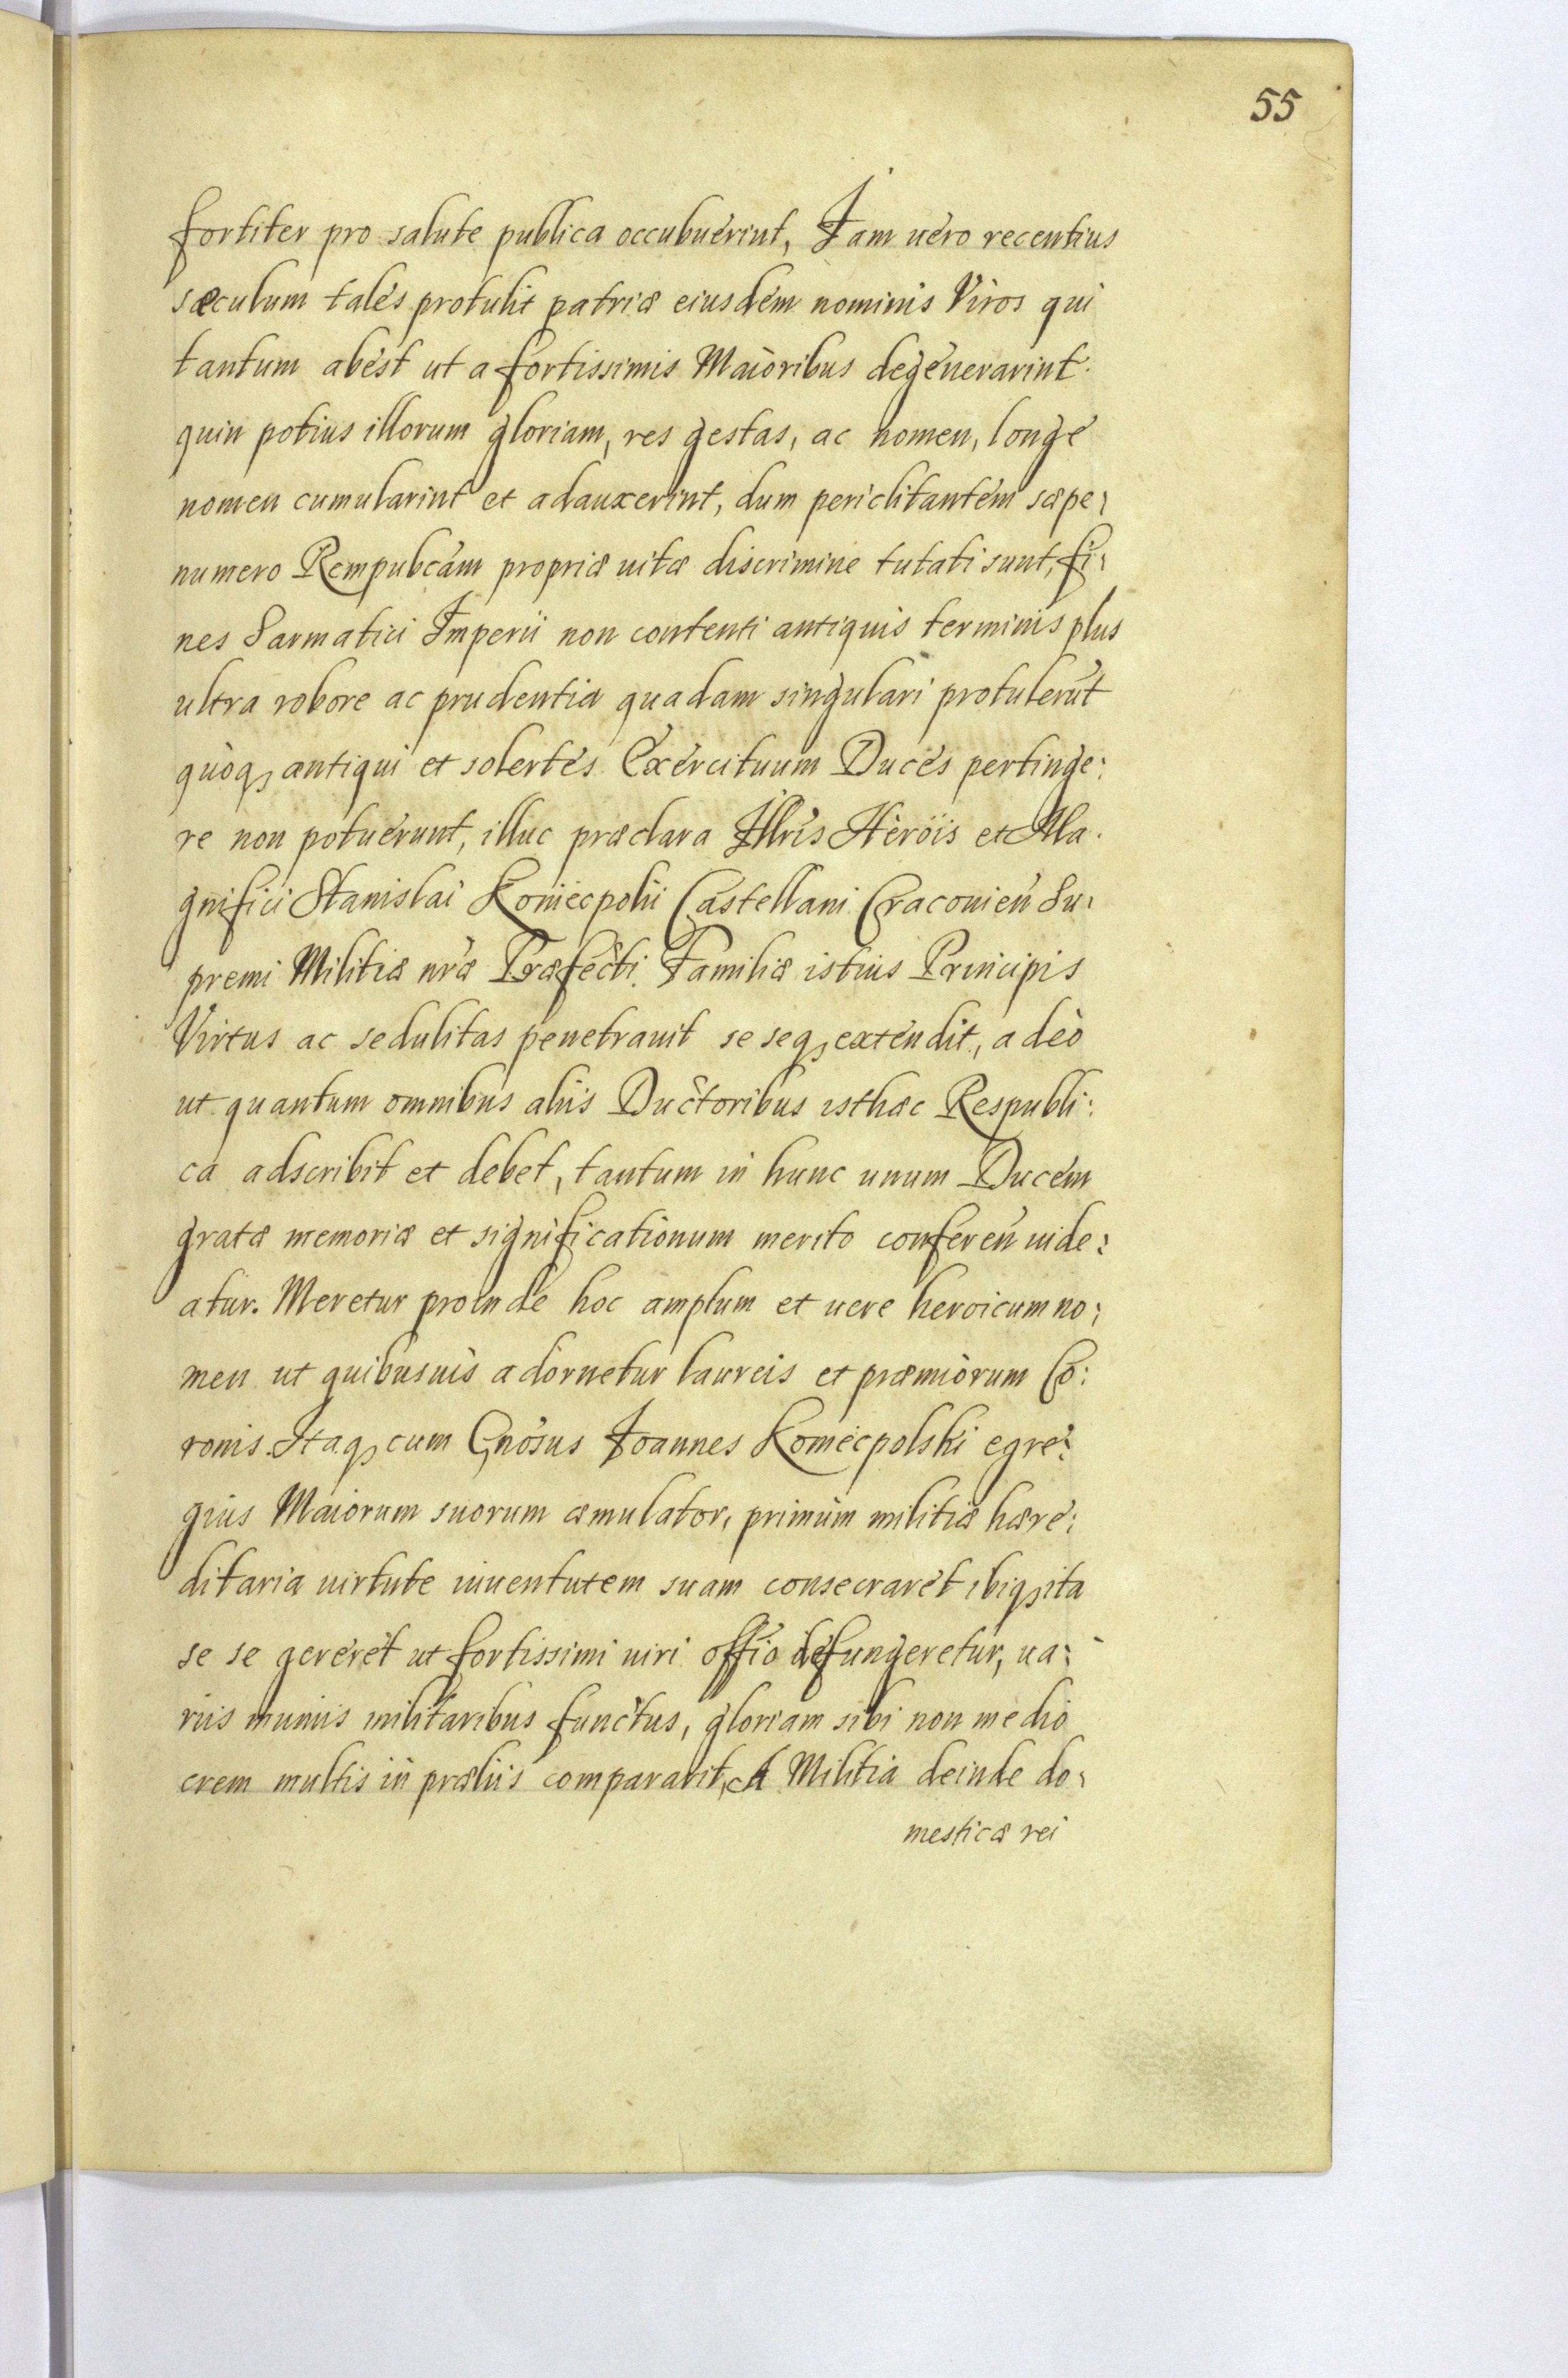 55
fortiter pro salute publica occubuerint, Iam uero recentius
sæculum tales protulit patriæ eiusdem nominis Viros qui
tantum abest ut a fortissimis Maioribus degenerarint.
quin potius illorum gloriam, res gestas, ac nomen, longe
nomen cumularint et adauxerint, dum periclitantem sæpe:
numero Rempubcam propriæ uitæ discrimine tutati sunt, fi:
nes Sarmatici Imperii non contenti antiquis terminis plus
ultra robore ac prudentia quadam singulari protulerūt
quòq₃ antiqui et solertes Exercituum Duces pertinge:
re non potuerunt, illuc præclara Illris Heröis et Ma:
gnifici Stanislai Koniecpolii Castellani Cracouien̄ Su:
premi Militiæ nr̄æ Præfecti. Familiæ istius Principis
Virtus ac sedulitas penetrauit se seq₃ extendit, adeò
ut quantum omnibus aliis Ductoribus isthæc Respubli:
ca adscribit et debet, tantum in hunc unum Ducem
gratæ memoriæ et significationum merito conferen̄ uide:
atur. Meretur proinde hoc amplum et uere heroicum no:
men ut quibusuis adornetur laureis et præmiorum Co:
ronis. Itaq₃ cum Gnōsus Ioannes Koniecpolski egre:
gius Maiorum suorum æmulator, primùm militiæ hære:
ditaria uirtute iuuentutem suam consecraret ibiq₃ ita
se se gereret ut fortissimi uiri offīo defungeretur, ua:
riis muniis militaribus functus, gloriam sibi non medio
crem multis in præliis compararit, A Militia deinde do:
mesticæ rei